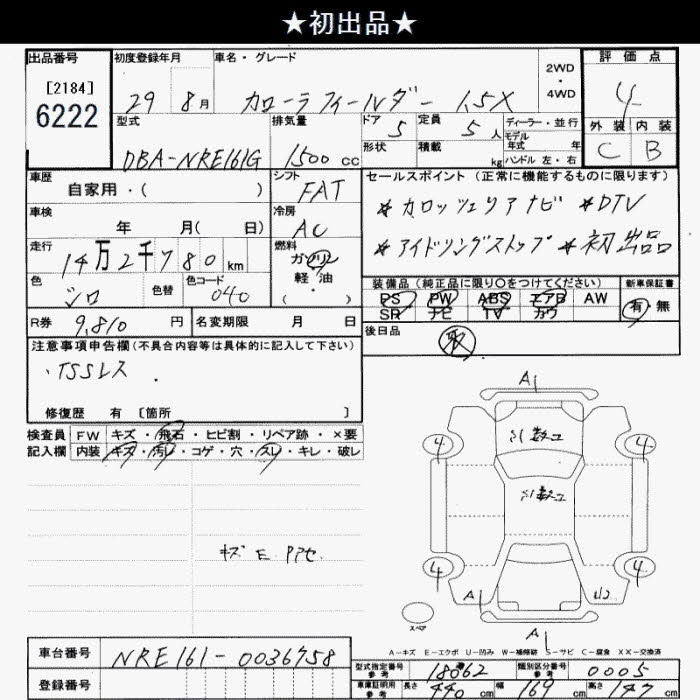 ★初出品★
出品番号 初度登録年月 車名・グレード 2WD・4WD 評価点
[2184]
6222
29 8月 カローラフィールダー 1.5X 4
型式 排気量 ドア 5 定員 5人 ディーラー・並行 外装 内装
モデル年式 年
DBA-NRE161G 1500cc 形状 積載 kg ハンドル 左・右 C B
車歴 シフト セールスポイント (正常に機能するものに限ります)
自家用・( ) FAT
車検 冷房 ＊カロッツェリアナビ ＊DTV
年 月( 日) AC
走行 燃料 ＊アイドリングストップ ＊初出品
14万2千780km ガソリン
軽・油
・( )
色 色替 色コード 装備品(純正品に限り〇をつけてください) 新車保証書
シロ 040 PS PW ABS エアB AW 有 無
SR ナビ TV カワ
R券 9,810円 名変期限 月 日 後日品 取
注意事項申告欄(不具合内容等は具体的に記入して下さい)
・TSSレス
修復歴 有 [箇所 ]
検査員 FW キズ・飛石・ヒビ割・リペア跡・×要
記入欄 内装 キズ・汚レ・コゲ・穴・スレ・キレ・破レ
キズ E
A1
4 4
4 4
A1
A1
スペア
A-キズ E-エクボ U-凹み W-補修跡 S-サビ C-腐食 XX-交換済
車台番号 NRE161-0036758
型式指定番号 参考 18062 類別区分番号 参考 0005
登録番号 車庫証明用 参考 長さ 440cm 幅 169cm 高さ 147cm